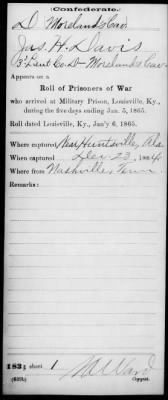 Confederate.
D Morelands Cav
Jas. H. Davis
Appears on a
Roll of Prisoners of War
who arrived at Military Prison, Louisville, Ky.,
during the five days ending Jan. 5, 1865.
Roll dated Louisville, Ky., Jan'y 6, 1865.
Where captured Near Huntsville, Ala
When captured Dec 23, 1864
Where from Nashville, Tenn
Remarks:
sheet 1
M Ward
Copyist.